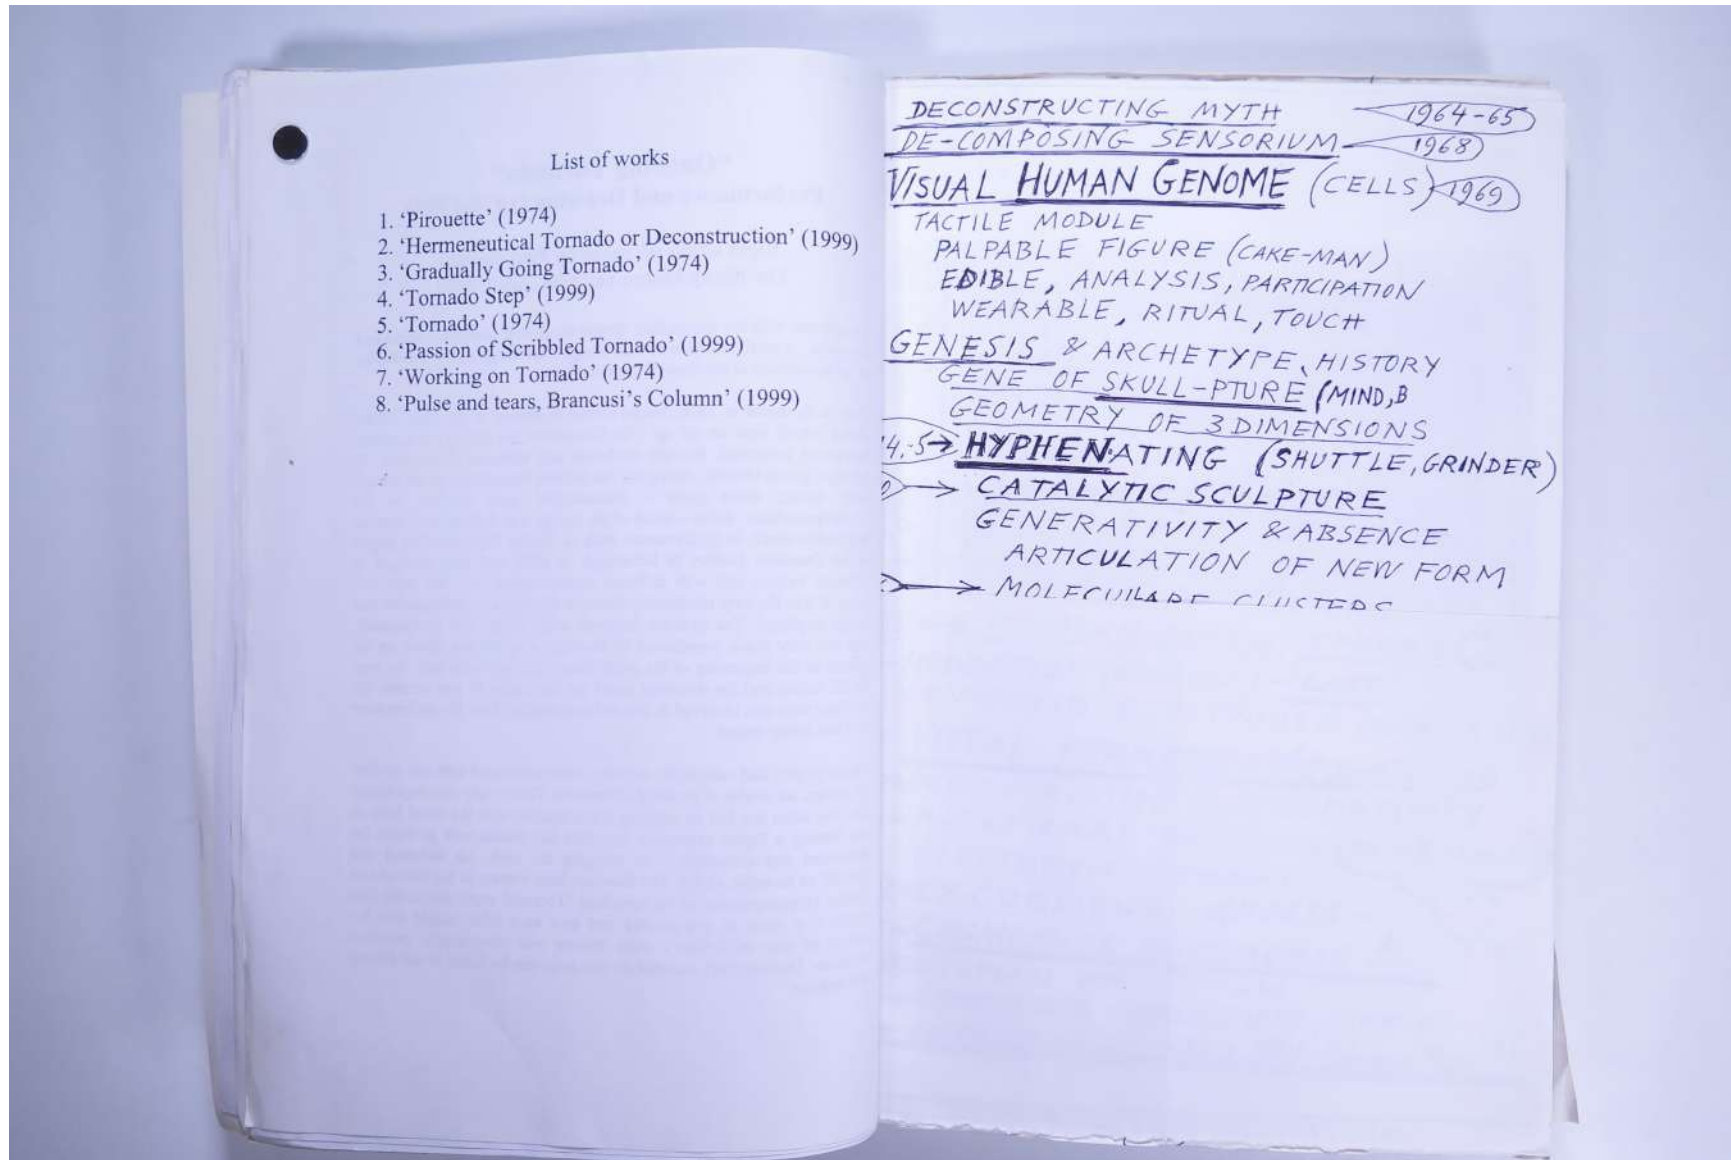 List of works
1. ‘Pirouette’ (1974)
2. ‘Hermeneutical Tornado or Deconstruction’ (1999)
3. ‘Gradually Going Tornado’ (1974)
4. ‘Tornado Step’ (1999)
5. ‘Tornado’ (1974)
6. ‘Passion of Scribbled Tornado’ (1999)
7. ‘Working on Tornado’ (1974)
8. ‘Pulse and tears, Brancusi’s Column’ (1999)
DECONSTRUCTING MYTH 1964-65
DE-COMPOSING SENSORIUM 1968
VISUAL HUMAN GENOME (CELLS) 1969
TACTILE MODULE
PALPABLE FIGURE (CAKE-MAN)
EDIBLE, ANALYSIS, PARTICIPATION
WEARABLE, RITUAL, TOUCH
GENESIS & ARCHETYPE, HISTORY
GENE OF SKULL-PTURE (MIND, B
GEOMETRY OF 3 DIMENSIONS
4,-5 → HYPHENATING (SHUTTLE, GRINDER)
→ CATALYTIC SCULPTURE
GENERATIVITY & ABSENCE
ARTICULATION OF NEW FORM
→ MOLECULARE CLUSTERS